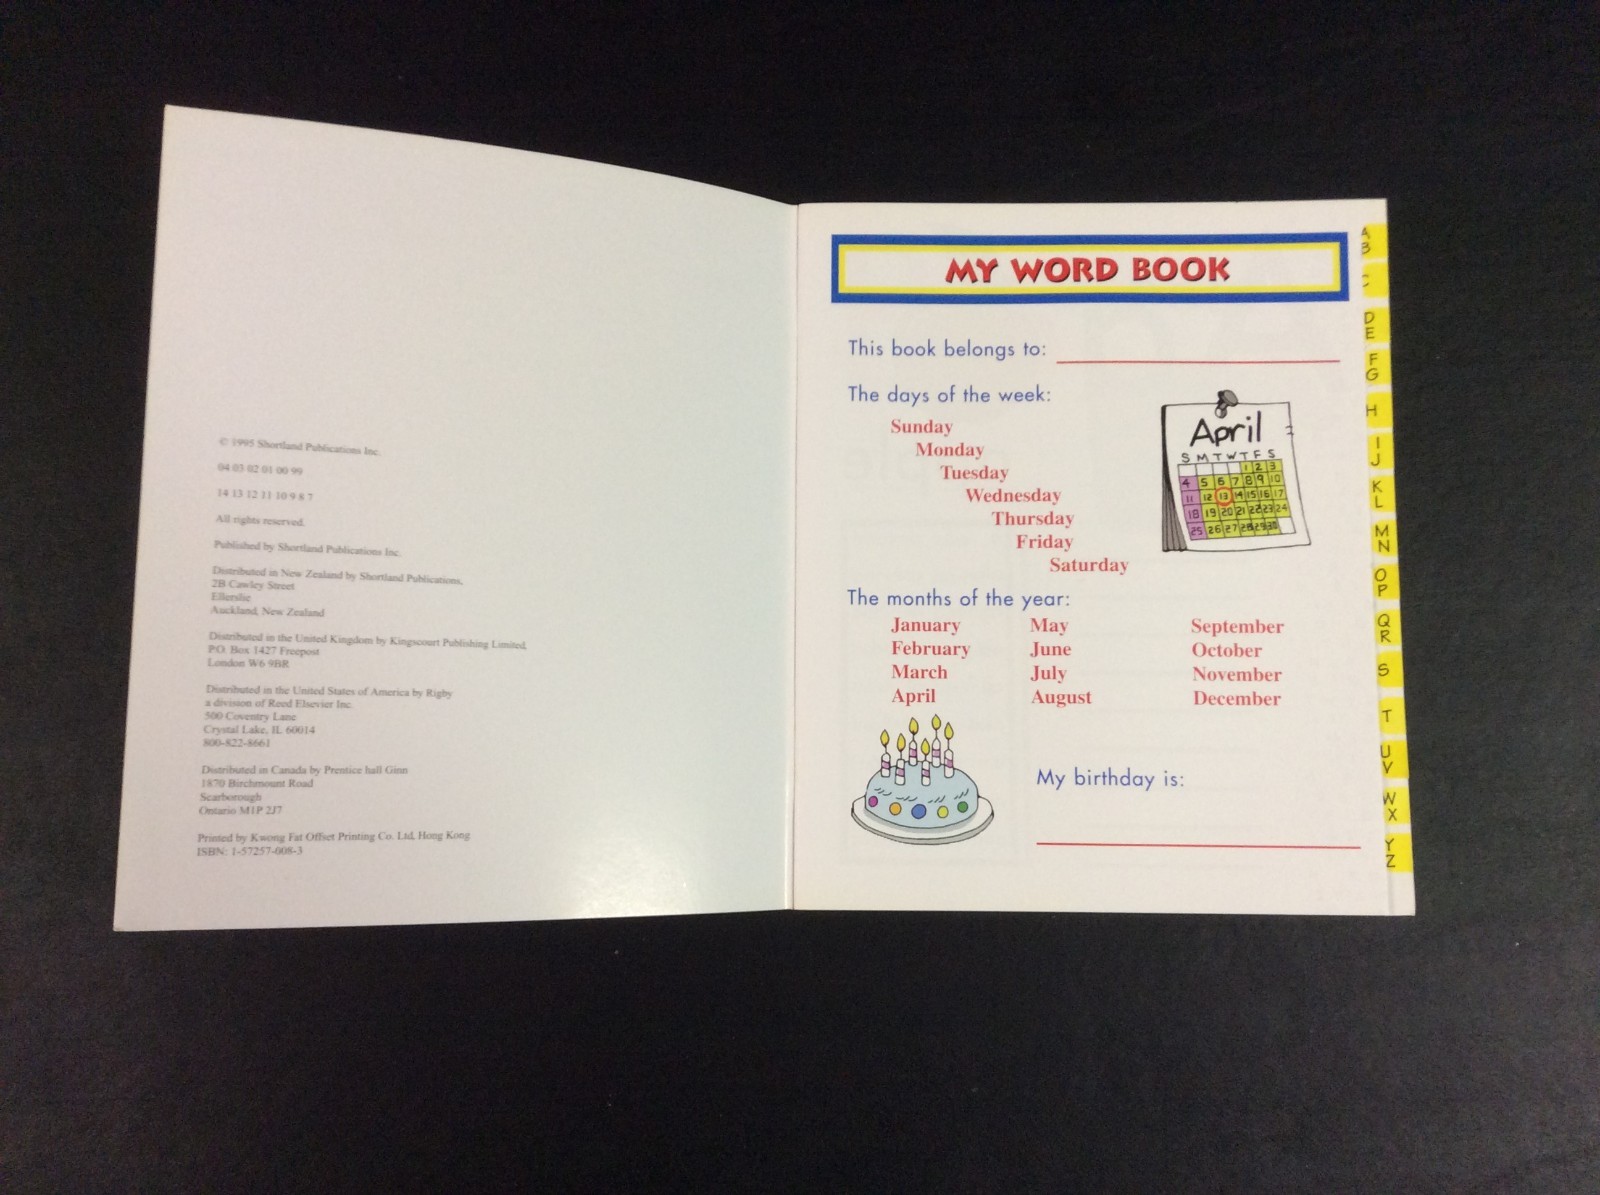 © 1995 Shortland Publications Inc.
04 03 02 01 00 99
14 13 12 11 10 9 8 7
All rights reserved.
Published by Shortland Publications Inc.
Distributed in New Zealand by Shortland Publications,
2B Cawley Street
Ellerslie
Auckland, New Zealand
Distributed in the United Kingdom by Kingscourt Publishing Limited,
P.O. Box 1427 Freepost
London W6 9BR
Distributed in the United States of America by Rigby
a division of Reed Elsevier Inc.
500 Coventry Lane
Crystal Lake, IL 60014
800-822-8661
Distributed in Canada by Prentice hall Ginn
1870 Birchmount Road
Scarborough
Ontario M1P 2J7
Printed by Kwong Fat Offset Printing Co. Ltd, Hong Kong
ISBN: 1-57257-008-3
MY WORD BOOK
This book belongs to:
The days of the week:
Sunday
Monday
Tuesday
Wednesday
Thursday
Friday
Saturday
April
S M T W T F S
1 2 3
4 5 6 7 8 9 10
11 12 13 14 15 16 17
18 19 20 21 22 23 24
25 26 27 28 29 30
The months of the year:
January May September
February June October
March July November
April August December
My birthday is:
A
B
C
D
E
F
G
H
I
J
K
L
M
N
O
P
Q
R
S
T
U
V
W
X
Y
Z